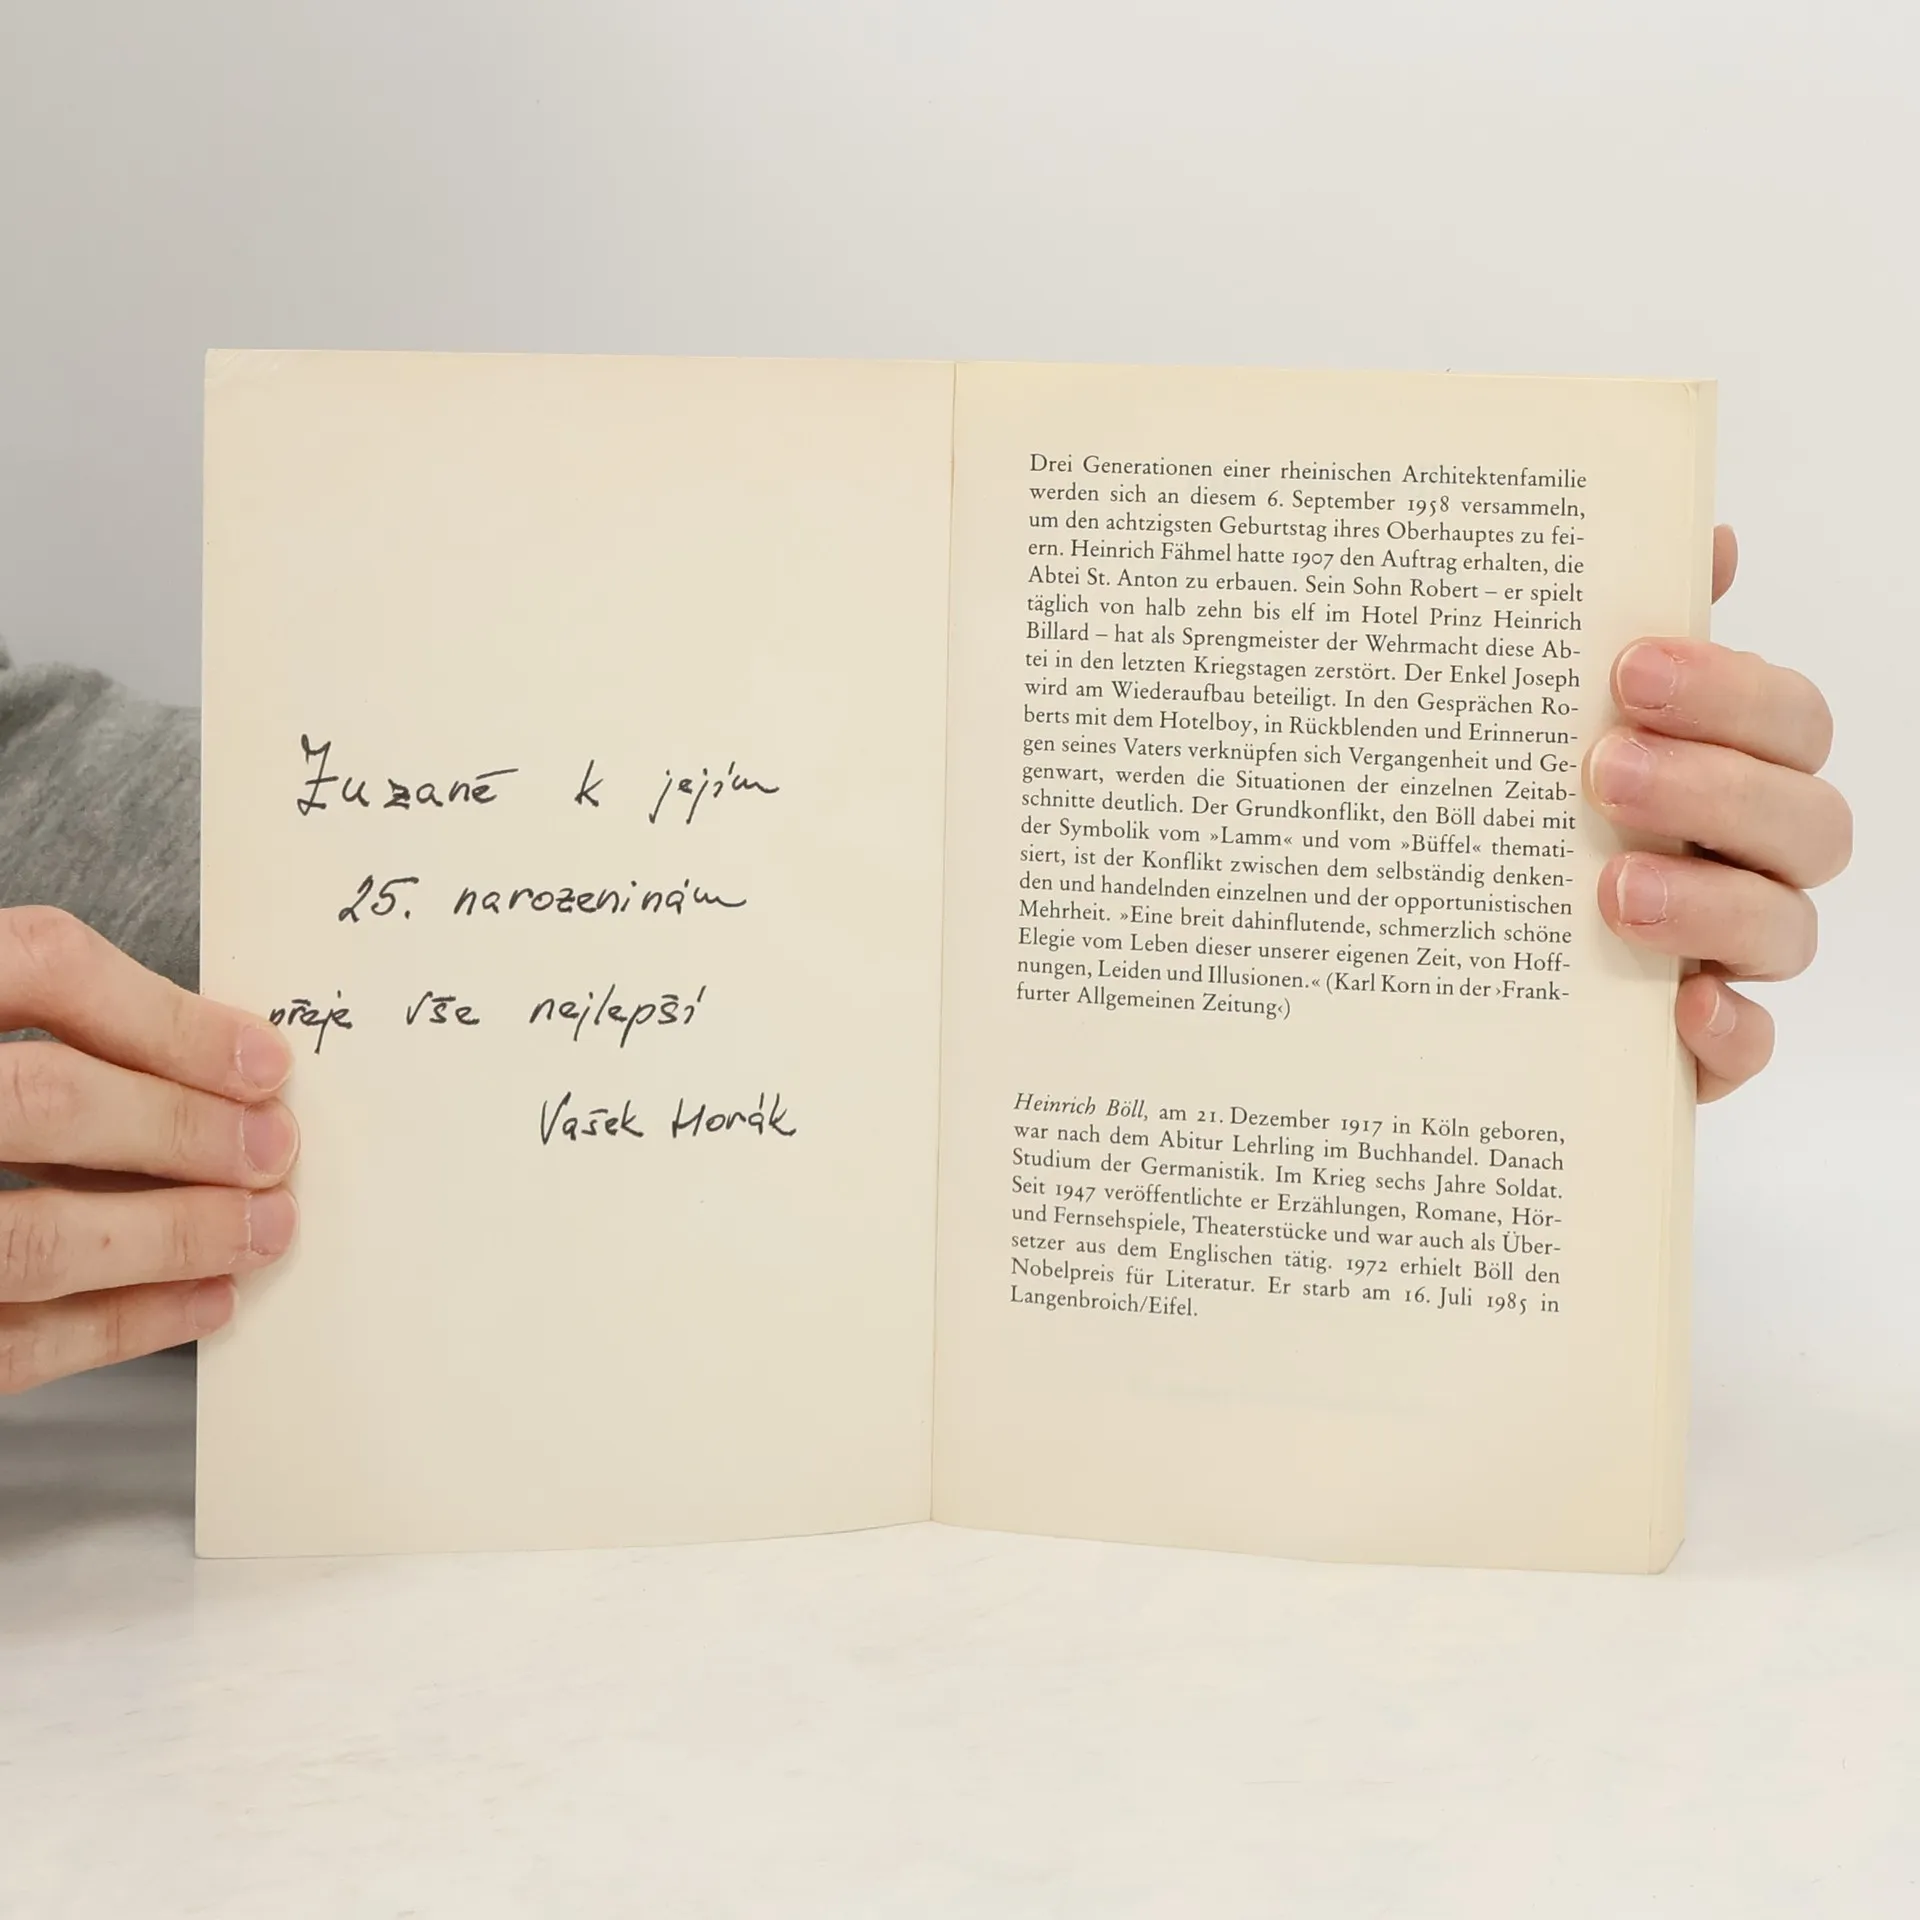 Zuzaně k jejím
25. narozeninám
přeje vše nejlepší
Vašek Horák
Drei Generationen einer rheinischen Architektenfamilie
werden sich an diesem 6. September 1958 versammeln,
um den achtzigsten Geburtstag ihres Oberhauptes zu fei-
ern. Heinrich Fähmel hatte 1907 den Auftrag erhalten, die
Abtei St. Anton zu erbauen. Sein Sohn Robert – er spielt
täglich von halb zehn bis elf im Hotel Prinz Heinrich
Billard – hat als Sprengmeister der Wehrmacht diese Ab-
tei in den letzten Kriegstagen zerstört. Der Enkel Joseph
wird am Wiederaufbau beteiligt. In den Gesprächen Ro-
berts mit dem Hotelboy, in Rückblenden und Erinnerun-
gen seines Vaters verknüpfen sich Vergangenheit und Ge-
genwart, werden die Situationen der einzelnen Zeitab-
schnitte deutlich. Der Grundkonflikt, den Böll dabei mit
der Symbolik vom »Lamm« und vom »Büffel« themati-
siert, ist der Konflikt zwischen dem selbständig denken-
den und handelnden einzelnen und der opportunistischen
Mehrheit. »Eine breit dahinflutende, schmerzlich schöne
Elegie vom Leben dieser unserer eigenen Zeit, von Hoff-
nungen, Leiden und Illusionen.« (Karl Korn in der ›Frank-
furter Allgemeinen Zeitung‹)
Heinrich Böll, am 21. Dezember 1917 in Köln geboren,
war nach dem Abitur Lehrling im Buchhandel. Danach
Studium der Germanistik. Im Krieg sechs Jahre Soldat.
Seit 1947 veröffentlichte er Erzählungen, Romane, Hör-
und Fernsehspiele, Theaterstücke und war auch als Über-
setzer aus dem Englischen tätig. 1972 erhielt Böll den
Nobelpreis für Literatur. Er starb am 16. Juli 1985 in
Langenbroich/Eifel.